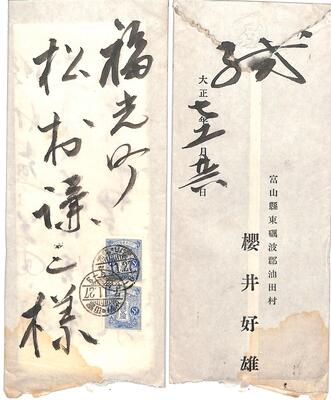 福光町
松村謙三様
大正七年十一月廿六日
富山縣東礪波郡油田村
櫻井好雄